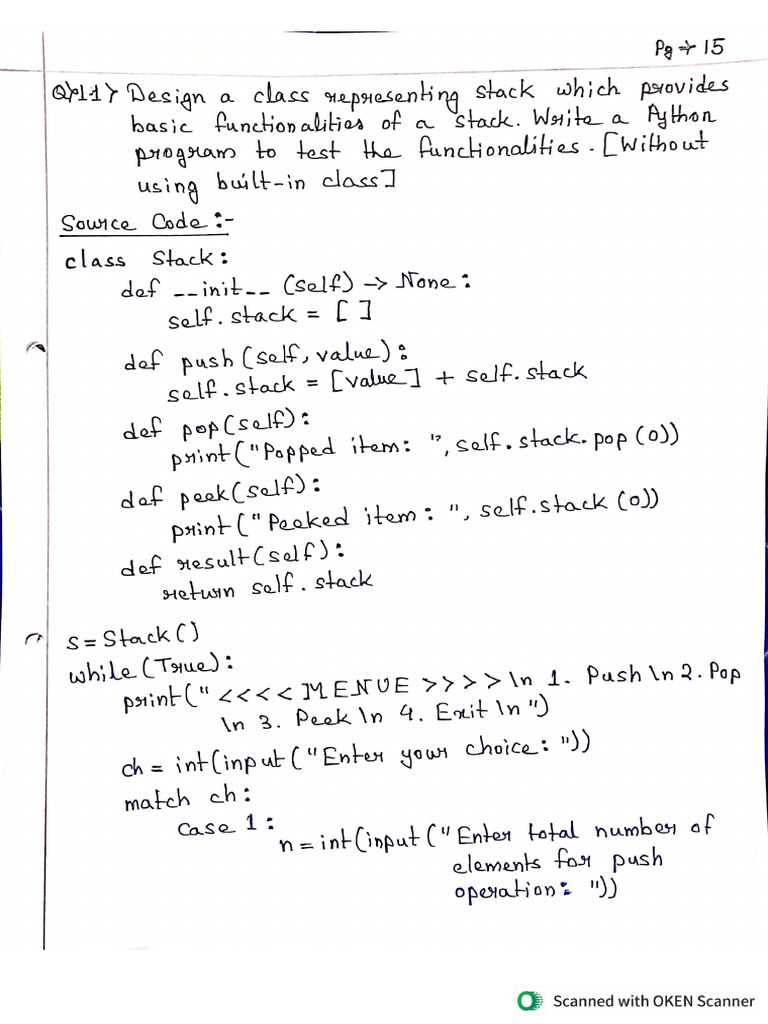 Pg → 15
Q→11> Design a class representing stack which provides
basic functionalities of a stack. Write a Python
program to test the functionalities. [Without
using built-in class]
Source Code :-
class Stack:
def __init__ (self) -> None:
self.stack = [ ]
def push (self, value):
self.stack = [value] + self.stack
def pop(self):
print("Popped item: ", self.stack.pop (0))
def peek(self):
print("Peeked item: ", self.stack (0))
def result(self):
return self.stack
s = Stack()
while(True):
print(" <<<< MENUE >>>>\n 1. Push \n 2. Pop
\n 3. Peek \n 4. Exit \n ")
ch = int(input ("Enter your choice: "))
match ch:
case 1:
n = int(input ("Enter total number of
elements for push
operation: "))
Scanned with OKEN Scanner